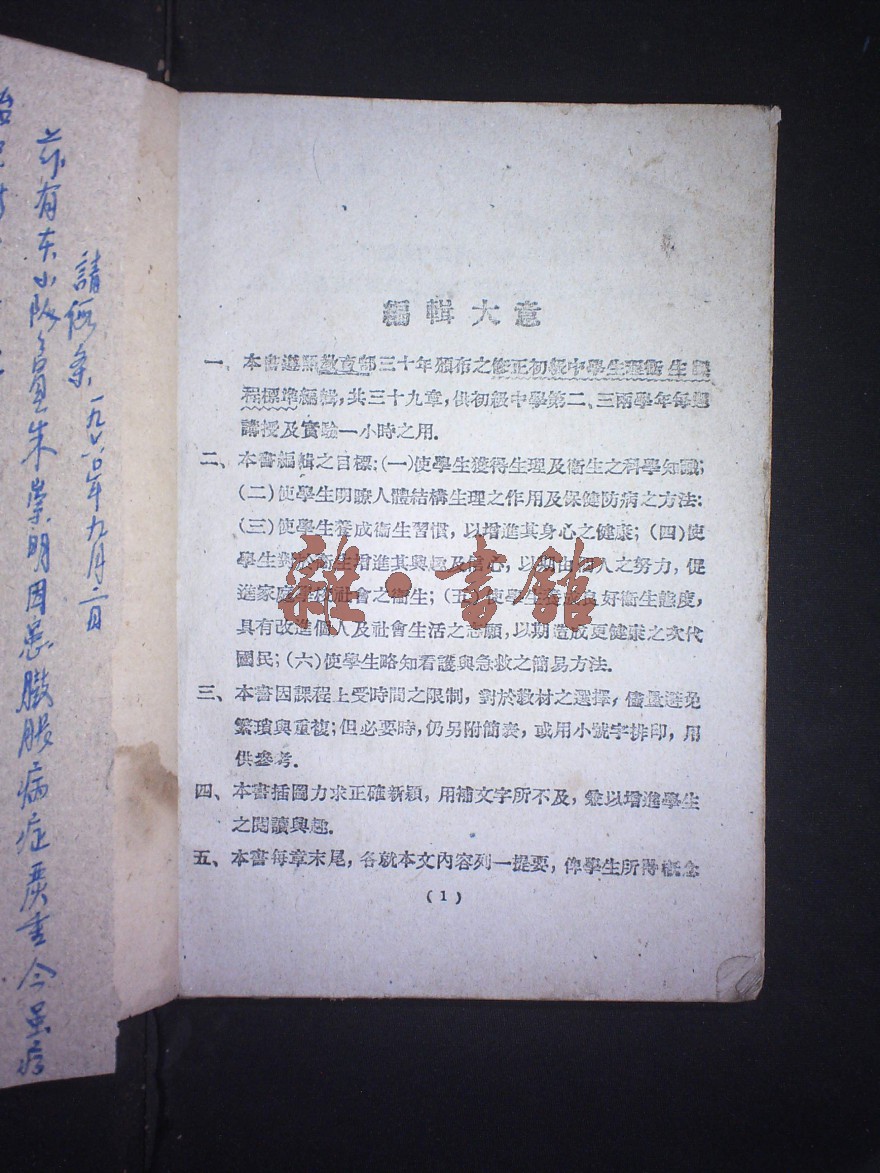 編輯大意
一、本書遵照教育部三十年頒布之修正初級中學生理衛生課
程標準編輯，共三十九章，供初級中學第二、三兩學年每週
講授及實驗一小時之用.
二、本書編輯之目標：(一)使學生獲得生理及衛生之科學知識；
(二)使學生明瞭人體結構生理之作用及保健防病之方法：
(三)使學生養成衞生習慣，以增進其身心之健康；(四)使
學生對於衞生增進其興趣及信心，以期由個人之努力，促
進家庭學校社會之衞生；(五)使學生養成良好衞生態度，
具有改進個人及社會生活之志願，以期造成更健康之次代
國民；(六)使學生略知看護與急救之簡易方法.
三、本書因課程上受時間之限制，對於教材之選擇，儘量避免
繁瑣與重複；但必要時，仍另附簡表，或用小號字排印，用
供參考.
四、本書插圖力求正確新穎，用補文字所不及，兼以增進學生
之閱讀興趣.
五、本書每章末尾，各就本文內容列一提要，俾學生所得概念
(1)
雜·書館
請假条
一九六〇年九月二日
有東小隊
朱崇明因患臌脹病症
今虽病